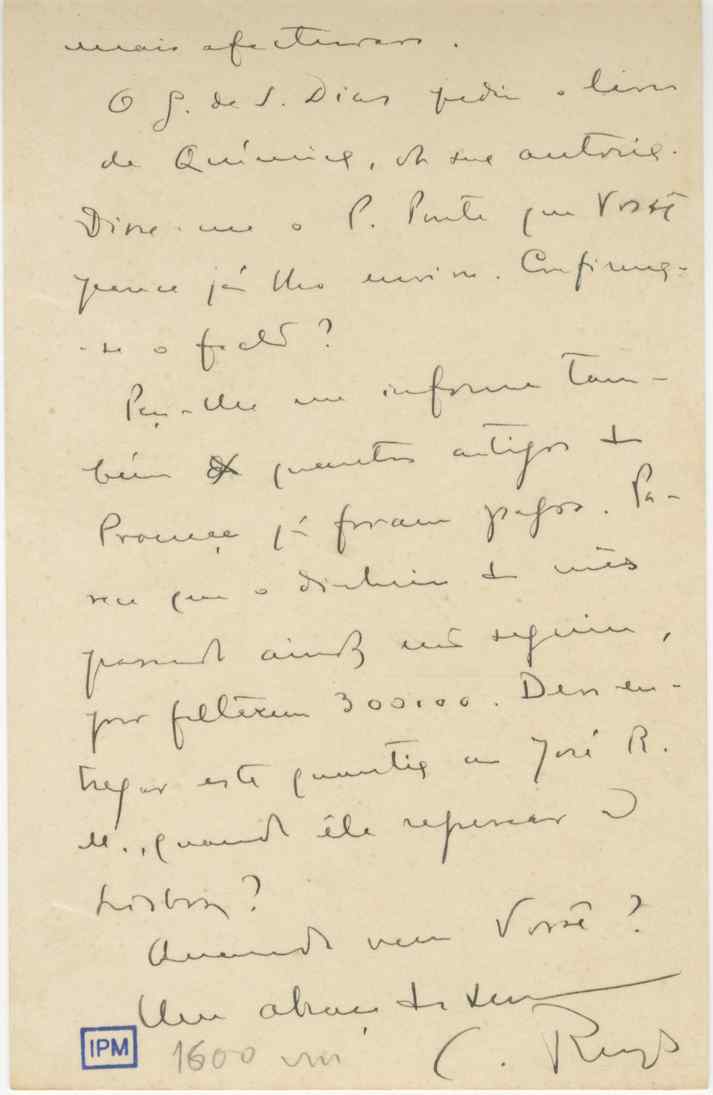 mais afectuosos.
O G. de S. Dias pediu o livro
de Química, de sua autoria.
Disse-me o P. Ponte que Vossê
parece já lho enviou. Confirma-
-se o facto?
Peço-lhe me informe tam-
bém quantos artigos do
Proença já foram pagos. Pa-
rece que o dinheiro do mês
passado ainda não seguiu,
por faltarem 300$00. Devo en-
tregar esta quantia ao José R.
M., quando êle regressar a
Lisboa?
Quando vem Vossê?
Um abraço do seu
C.
IPM
1600